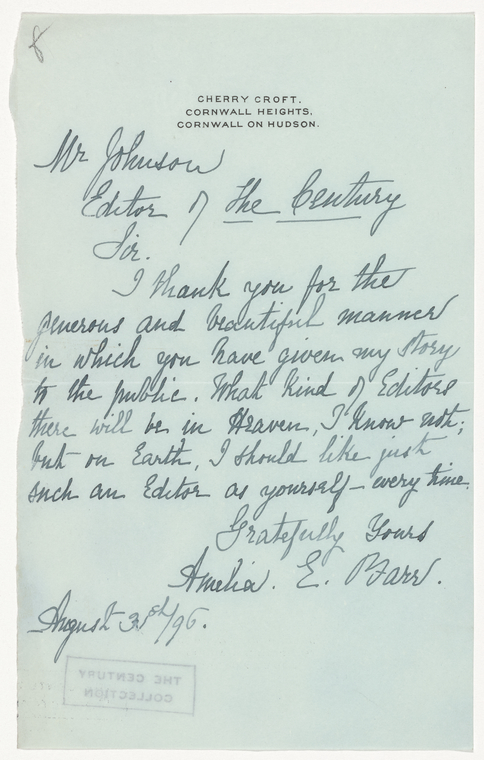 8
CHERRY CROFT.
CORNWALL HEIGHTS,
CORNWALL ON HUDSON.
Mr Johnson
Editor of The Century
Sir.
I thank you for the
generous and beautiful manner
in which you have given my story
to the public. What kind of Editors
there will be in Heaven, I know not;
but on Earth, I should like just
such an Editor as yourself – every time.
Gratefully Yours
Amelia. E. Barr.
August 31st/96.
THE CENTURY
COLLECTION